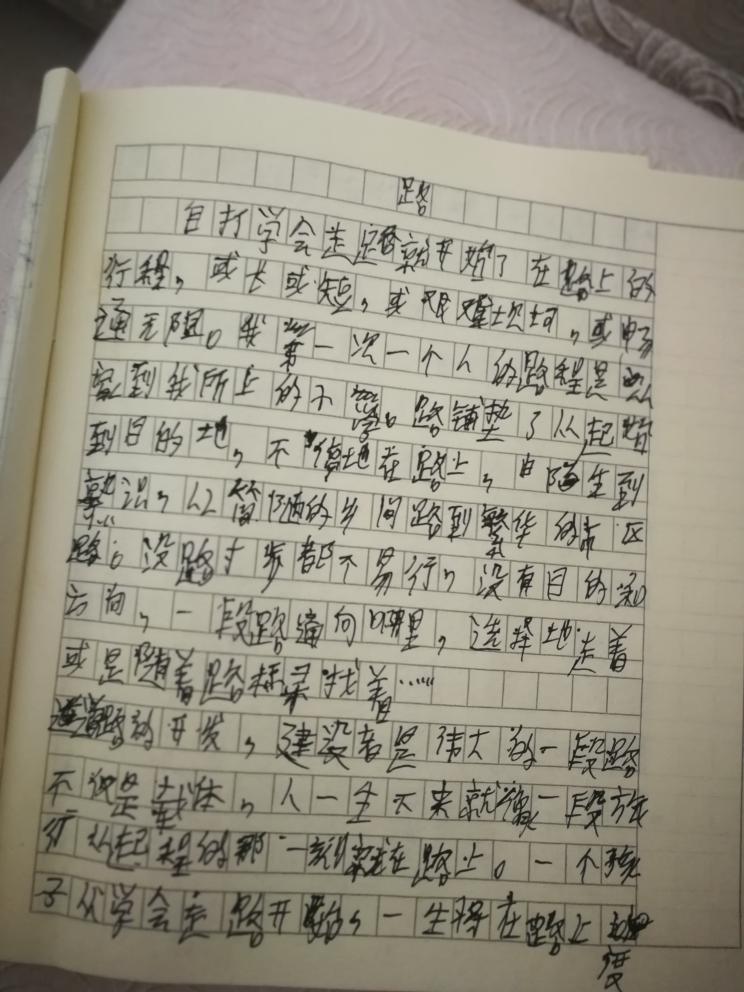 路
自打学会走路就开始了在路上的
行程，或长或短，或艰难坎坷，或畅
通无阻。我第一次一个人的路程是从
家到我所上的小学。路铺垫了从起始
到目的地，不停地在路上，由陌生到
熟识，从简陋的乡间路到繁华的市区
路。没路寸步都不易行，没有目的和
方向，一段路通向哪里，选择地走着
或是随着路标寻找着……
道路的开发，建设者是伟大的一段路
不仅是载体，人一生下来就像一段旅
行从起程的那一刻就在路上。一个孩
子从学会走路开始，一生将在路上
度